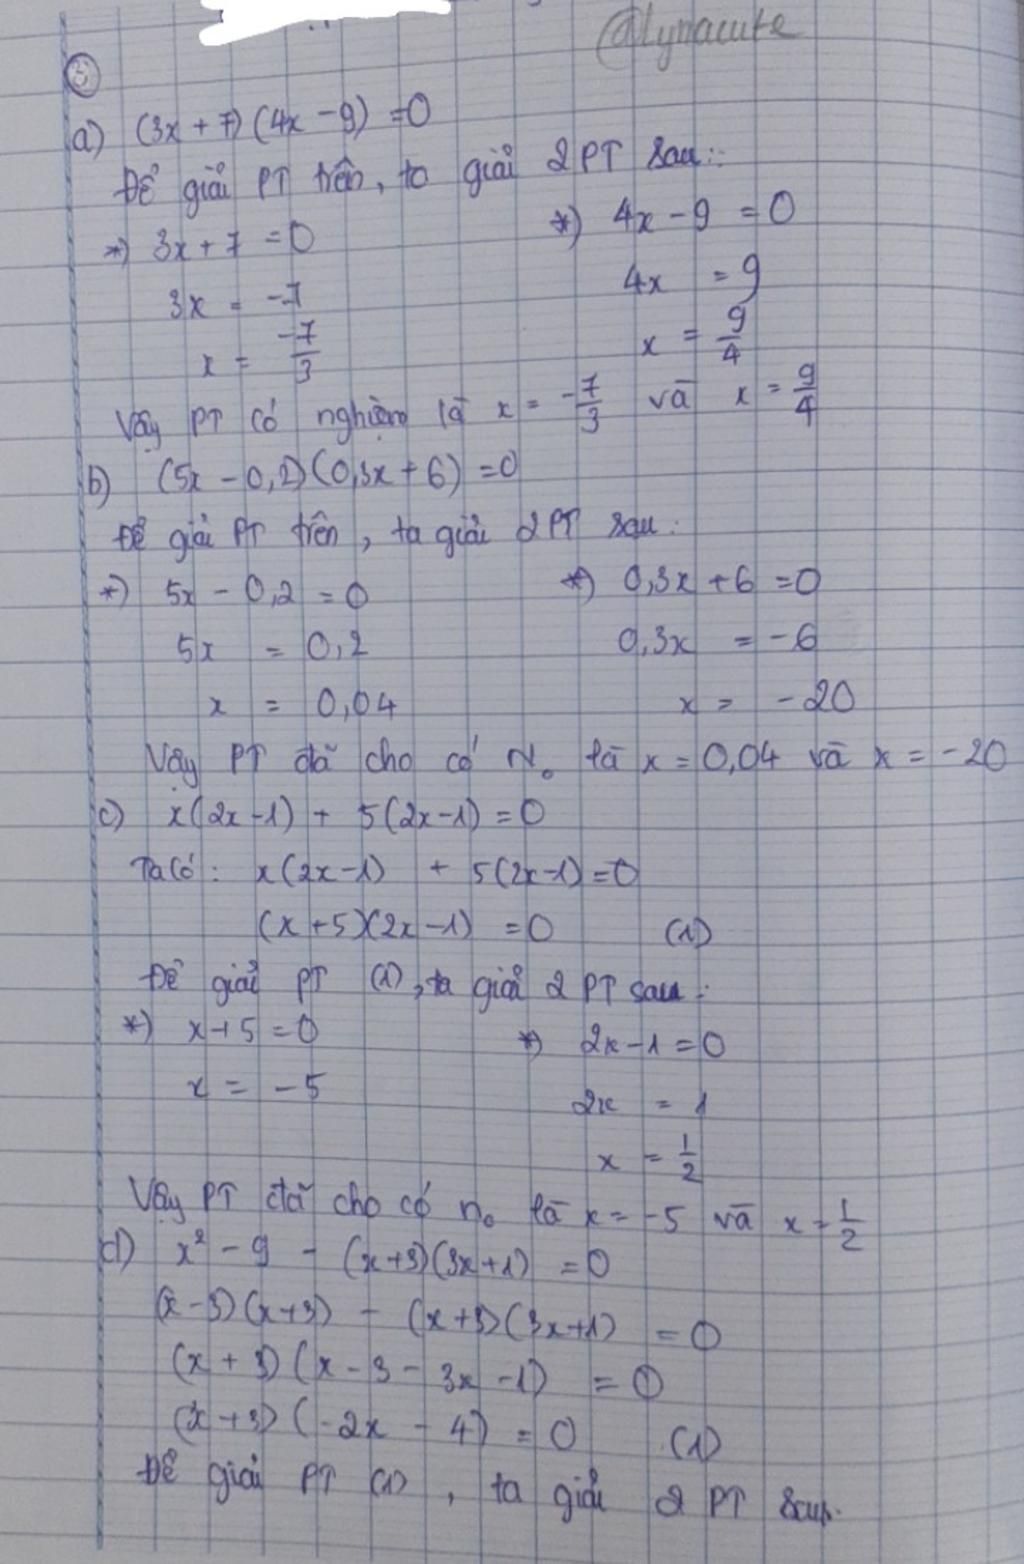 @lynacute
5
a) (3x + 7) (4x - 9) = 0
Để giải PT trên, ta giải 2 PT sau:
*) 3x + 7 = 0 *) 4x - 9 = 0
3x = -7 4x = 9
x = -7/3 x = 9/4
Vậy PT có nghiệm là x = -7/3 và x = 9/4
b) (5x - 0,2)(0,3x + 6) = 0
Để giải PT trên, ta giải 2 PT sau:
*) 5x - 0,2 = 0 *) 0,3x + 6 = 0
5x = 0,2 0,3x = -6
x = 0,04 x = -20
Vậy PT đã cho có No là x = 0,04 và x = -20
c) x(2x - 1) + 5(2x - 1) = 0
Ta có: x(2x - 1) + 5(2x - 1) = 0
(x + 5)(2x - 1) = 0 (1)
Để giải PT (1), ta giải 2 PT sau:
*) x + 5 = 0 *) 2x - 1 = 0
x = -5 2x = 1
x = 1/2
Vậy PT đã cho có no là x = -5 và x = 1/2
d) x² - 9 - (x + 3)(3x + 1) = 0
(x - 3)(x + 3) - (x + 3)(3x + 1) = 0
(x + 3)(x - 3 - 3x - 1) = 0
(x + 3)(-2x - 4) = 0 (1)
Để giải PT (1), ta giải 2 PT sau.